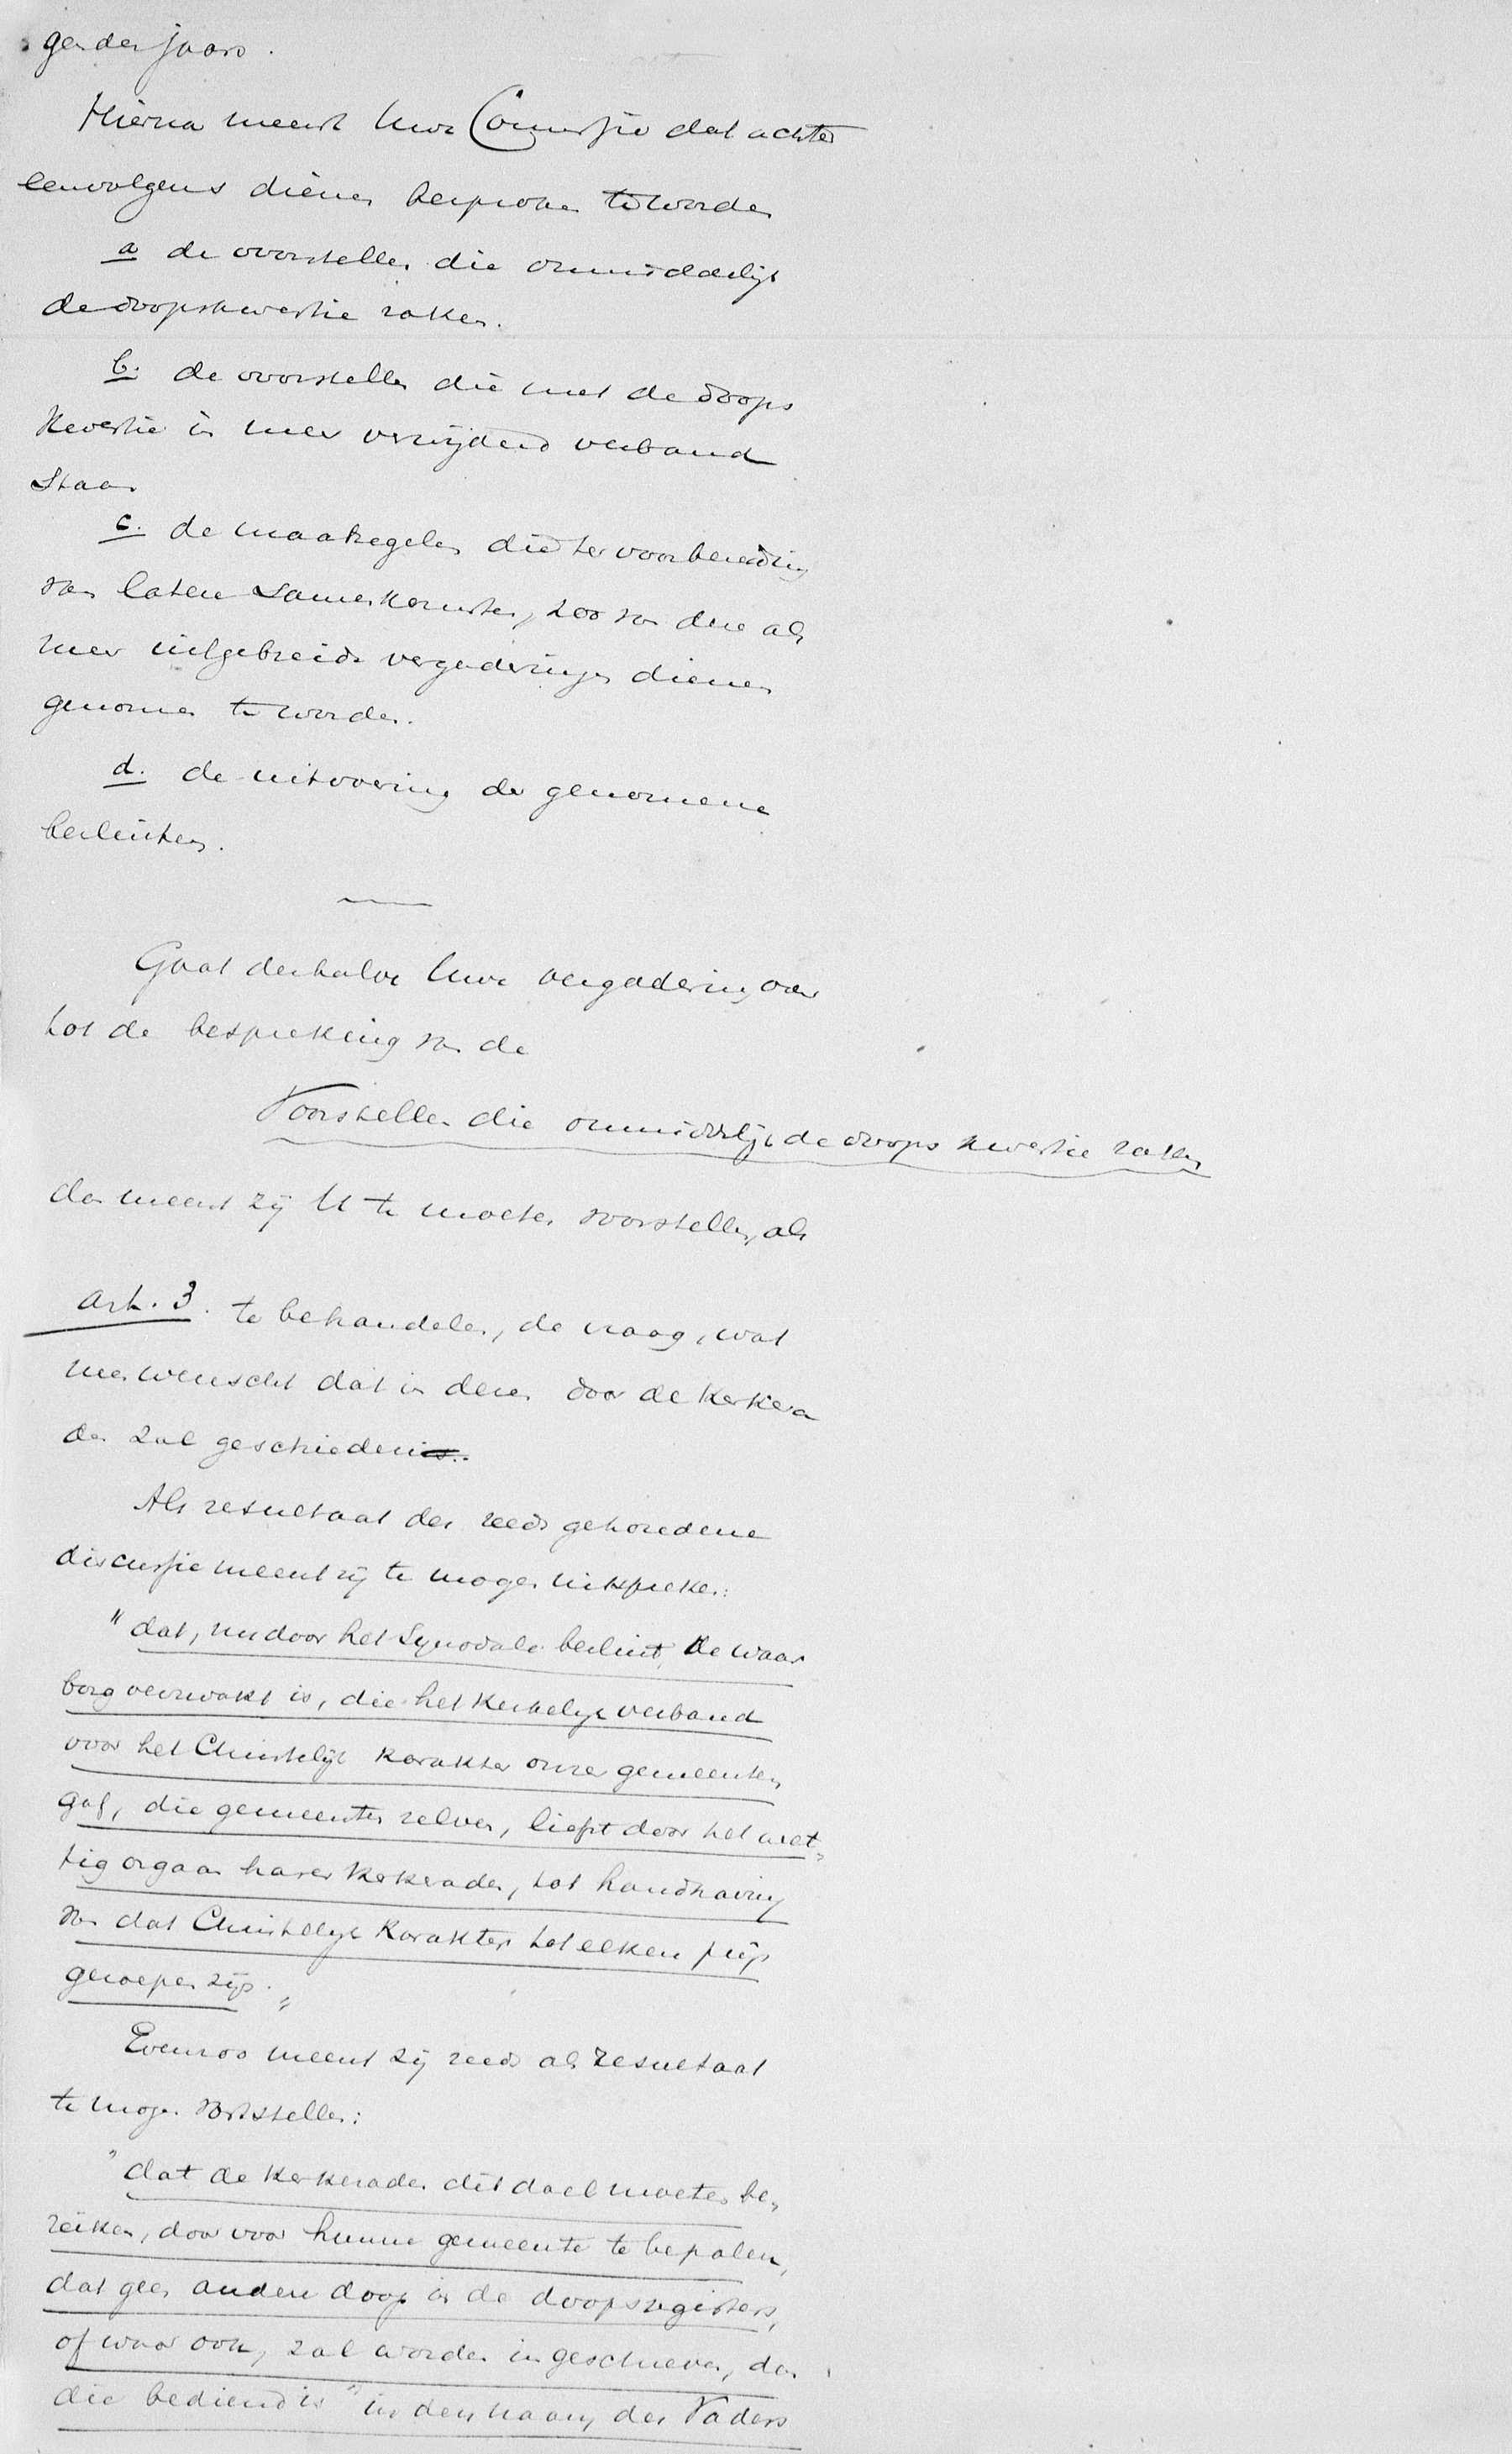 gender jaars.
Hierna meent Uwe Commissie dat achter
eenvolgens dienen besproken te worden
a de voorstellen die onmiddellijk
de doopskwestie raken.
b. de voorstellen die met de doops
kwestie in meer verwijderd verband
staan
c. de maatregelen die ter voorbereiding
van latere samenkomsten, zoo van deze als
meer uitgebreide vergaderingen dienen
genomen te worden.
d. de uitvoering der genomene
besluiten.
Gaat derhalve Uwe vergadering over
tot de bespreking van de
Voorstellen die onmiddelijk de doops kwestie raken
dan meent zij U te moeten voorstellen, als
Art. 3. te behandelen, de vraag, wat
men wenscht dat in dezen door de Kerkera
den zal geschieden
Als resultaat der reeds gehoudene
discussie meent zij te mogen uitspreken:
"dat, nu door het Synodale besluit, de waar
borg verzwakt is, die het Kerkelijk verband
voor het Christelijk karakter onzer gemeenten
gaf, die gemeenten zelven, liefst door het wet„
tig orgaan harer Kerkeraden, tot handhaving
van dat Christelijk Karakter tot elken prijs
geroepen zijn."
Evenzoo meent zij reeds als resultaat
te mogen vaststellen:
"dat de Kerkeraden dit doel moeten be„
reiken, door voor hunne gemeente te bepalen,
dat geen andere doop in de doopsregisters,
of waar ook, zal worden ingeschreven, dan
die bediend is "in den naam des Vaders